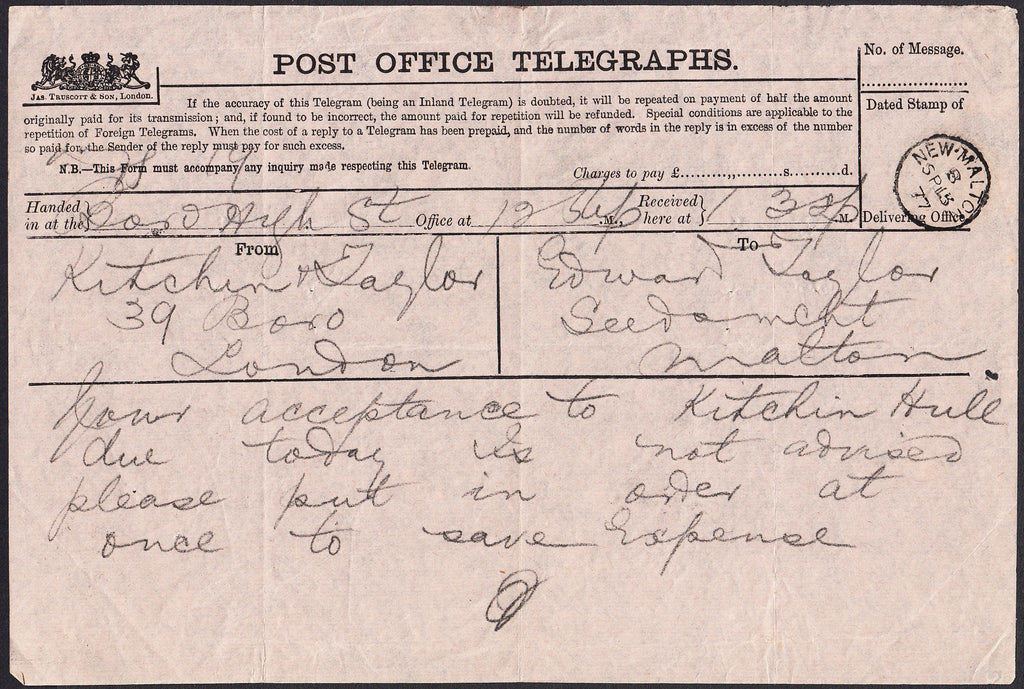 POST OFFICE TELEGRAPHS.
No. of Message.
JAS. TRUSCOTT & SON, London.
Dated Stamp of
If the accuracy of this Telegram (being an Inland Telegram) is doubted, it will be repeated on payment of half the amount
originally paid for its transmission; and, if found to be incorrect, the amount paid for repetition will be refunded. Special conditions are applicable to the
repetition of Foreign Telegrams. When the cost of a reply to a Telegram has been prepaid, and the number of words in the reply is in excess of the number
so paid for, the Sender of the reply must pay for such excess.
N.B.—This Form must accompany any inquiry made respecting this Telegram.
Charges to pay £..........,,..........s..........d.
NEW-MALTON
SP 15
77
Handed in at the } Boro High St Office at 12 M. Received here at } 1 M. Delivering Office
From
Kitchin & Taylor
39 Boro
London
To
Edward Taylor
Seedsmcht
Malton
Your acceptance to Kitchin Hull
due today is not advised
please put in order at
once to save Expense